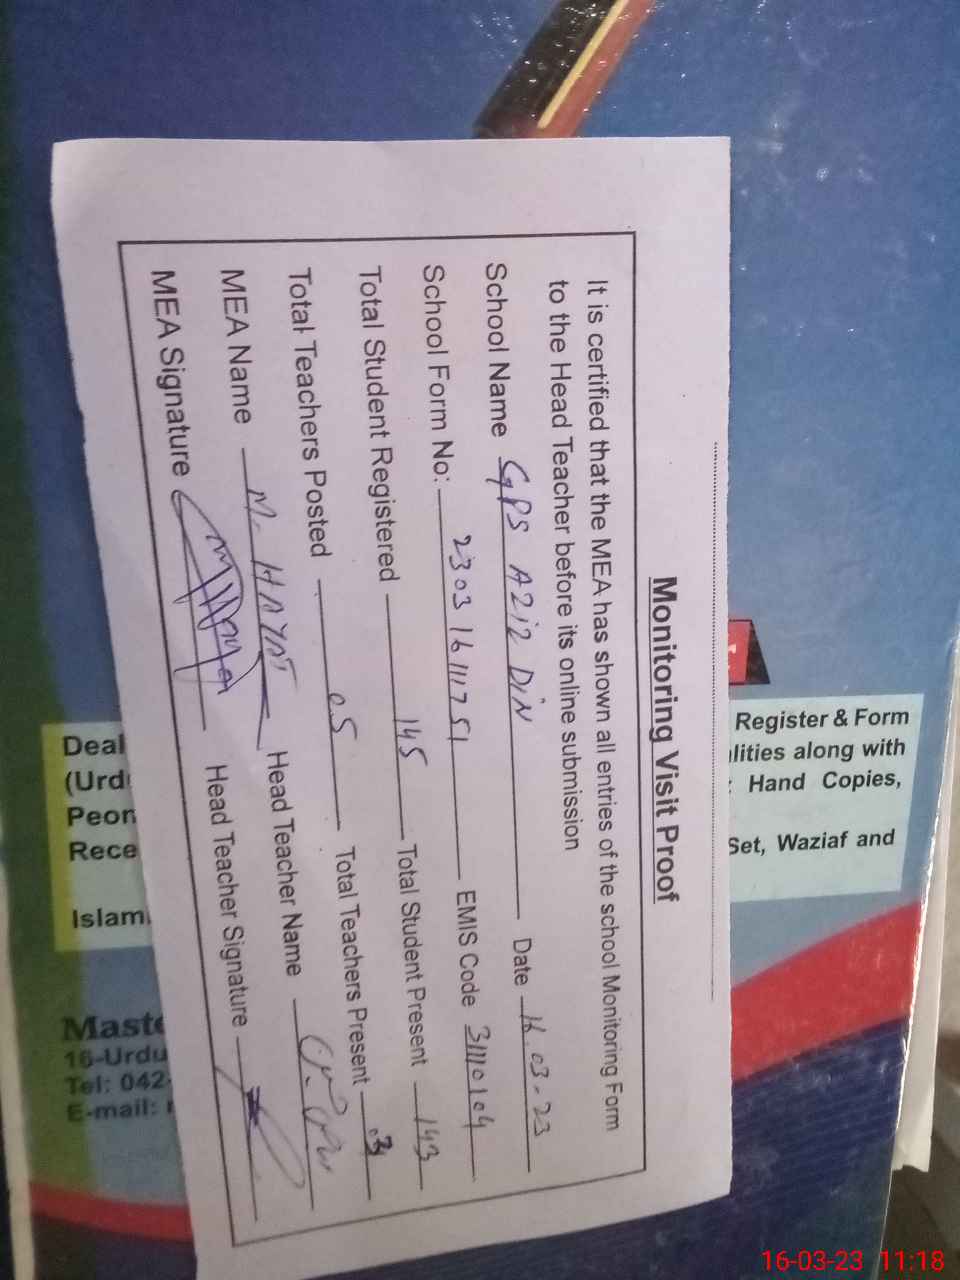 Monitoring Visit Proof
It is certified that the MEA has shown all entries of the school Monitoring Form
to the Head Teacher before its online submission
School Name GPS AZIZ DIN Date 16.03-23
School Form No: 2303161117 51 EMIS Code 31110104
Total Student Registered 145 Total Student Present 143
Total Teachers Posted 05 Total Teachers Present
MEA Name M. HAYAT Head Teacher Name
MEA Signature Head Teacher Signature
Register & Form
lities along with
Hand Copies,
Set, Waziaf and
Deal
(Urd
Peon
Rece
Islam
Maste
16-Urdu
Tel: 042-
E-mail:
16-03-23 11:18